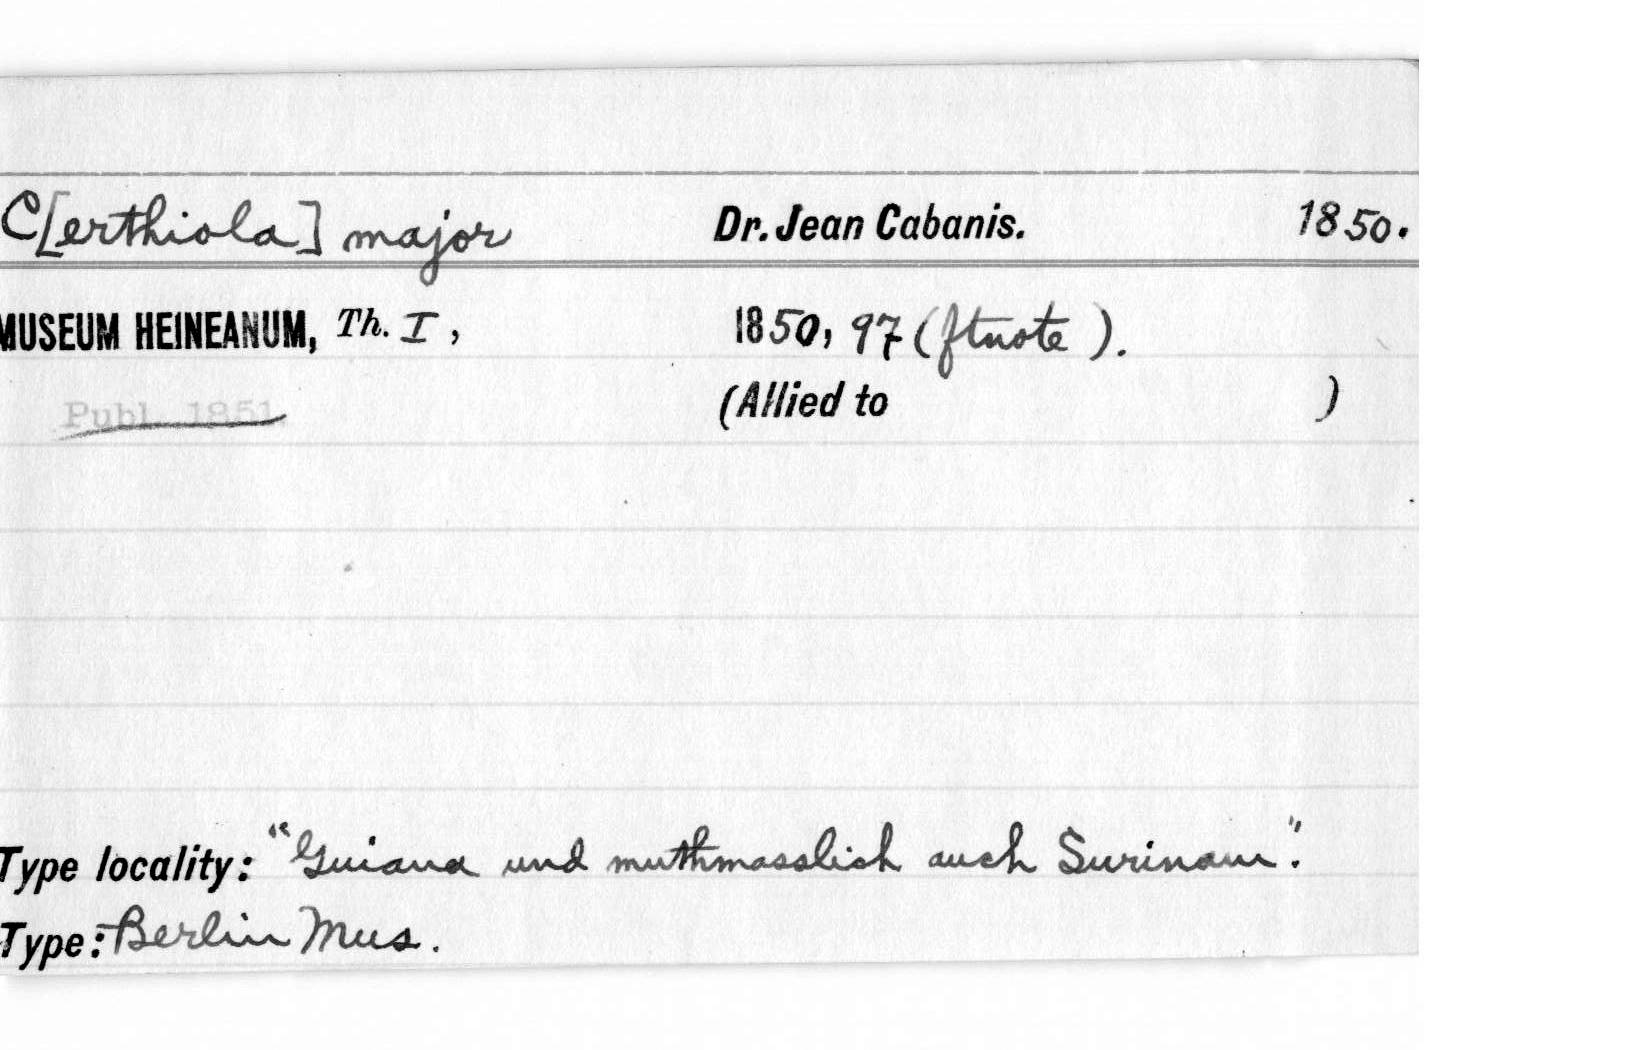 C[erthiola] major Dr. Jean Cabanis. 1850.
MUSEUM HEINEANUM, Th. I, 1850, 97 (ftnote).
Publ. 1851. (Allied to )
Type locality: "Guiana und muthmasslich auch Surinam".
Type: Berlin Mus.